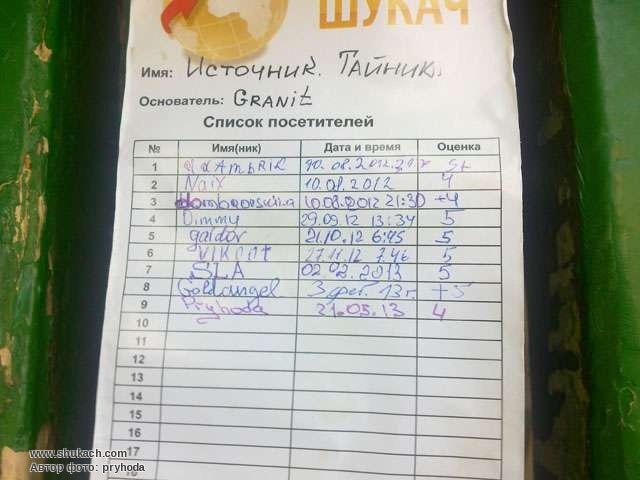 ШУКАЧ
Имя: Источник. Тайник.
Основатель: GRANIT
Список посетителей
№ Имя(ник) Дата и время Оценка
1 10.08.2012 5+
2 Naix 10.08.2012 4
3 10.08.2012 21:30 +4
4 Dimmy 29.09.12 13:34 5
5 galdor 21.10.12 6:45 5
6 VIKCOT 27.11.12 7.46 5
7 SLA 02.02.2013 5
8 Goldangel 3 фев. 13 г. +5
9 Pryhoda 21.05.13 4
10
11
12
13
14
15
16
17
18
www.shukach.com
Автор фото: pryhoda